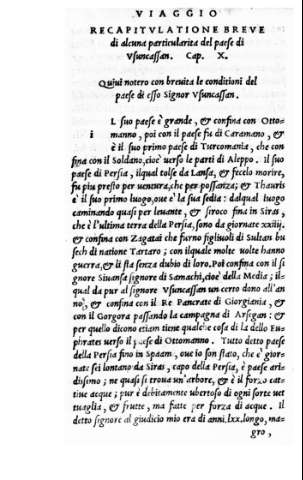 VIAGGIO
RECAPITVLATIONE BREVE
di alcuna particularita del paese di
Vsuncassan. Cap. X.
Quiui notero con breuita le conditioni del
paese di esso Signor Vsuncassan.
L suo paese è grande, & confina con Otto-
i manno, poi con il paese fu di Caramano, &
è il suo primo paese di Turcomania, che con
fina con il Soldano, cioè verso le parti di Aleppo. Il suo
paese di Persia, ilqual tolse da Lansa, & fecelo morire,
fu piu presto per uentura, che per possanza; & Thauris
è il suo primo luogo, oue è la sua sedia: dalqual luogo
caminando quasi per leuante, & siroco fina in Siras,
che è l'ultima terra della Persia, sono da giornate xxiiij.
& confina con Zagatai che furno figliuoli di Sultan bu
sech di natione Tartaro; con liquale molte uolte hanno
guerra, & li sta senza dubio di loro. Poi confina con il si
gnore Siuansa signore di Samachi, cioè della Media; il-
qual da pur al signore Vsuncassan un certo dono all'an
no, & confina con il Re Pancrate di Giorgiania, &
con il Gorgora passando la campagna di Arsegan: &
per quello dicono etiam tiene qualche cosa di la dello Eu-
phrates verso il paese di Ottomanno. Tutto detto paese
della Persia fino in Spaam, oue io son stato, che è gior-
nate sei lontano da Siras, capo della Persia, è paese ari-
dissimo; ne quasi si troua un'arbore, & è il forzo cat-
tiue acque; pur è debitamente ubertoso di ogni sorte uet
tuaglia, & frutte, ma fatte per forza di acque. Il
detto signore al giudicio mio era di anni. lxx. longo, ma-
gro,